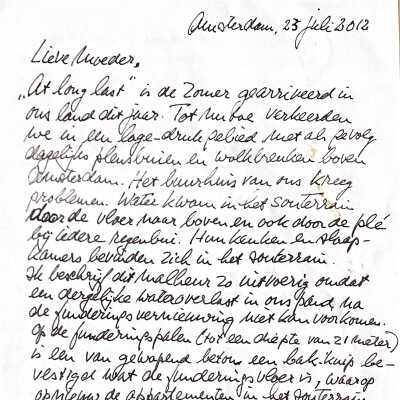 Amsterdam, 23 juli 2012
Lieve Moeder,
„At long last" is de Zomer gearriveerd in
ons land dit jaar. Tot nu toe verkeerden
we in een lage-druk gebied met als gevolg
dagelijks plensbuien en wolkbreuken boven
Amsterdam. Het buurhuis van ons kreeg
problemen. Water kwam in het souterrain
door de vloer naar boven en ook door de plé
bij iedere regenbui. Hun keuken en slaap-
kamers bevinden zich in het souterrain.
Ik beschrijf dit malheur zo uitvoerig omdat
een dergelijke wateroverlast in ons pand na
de funderingsvernieuwing niet kan voorkomen.
Op de funderingspalen (tot een diepte van 21 meter)
is een van gewapend beton een bak-kuip be-
vestigd wat de funderingsvloer is, waarop
opnieuw de appartementen in het souterrain